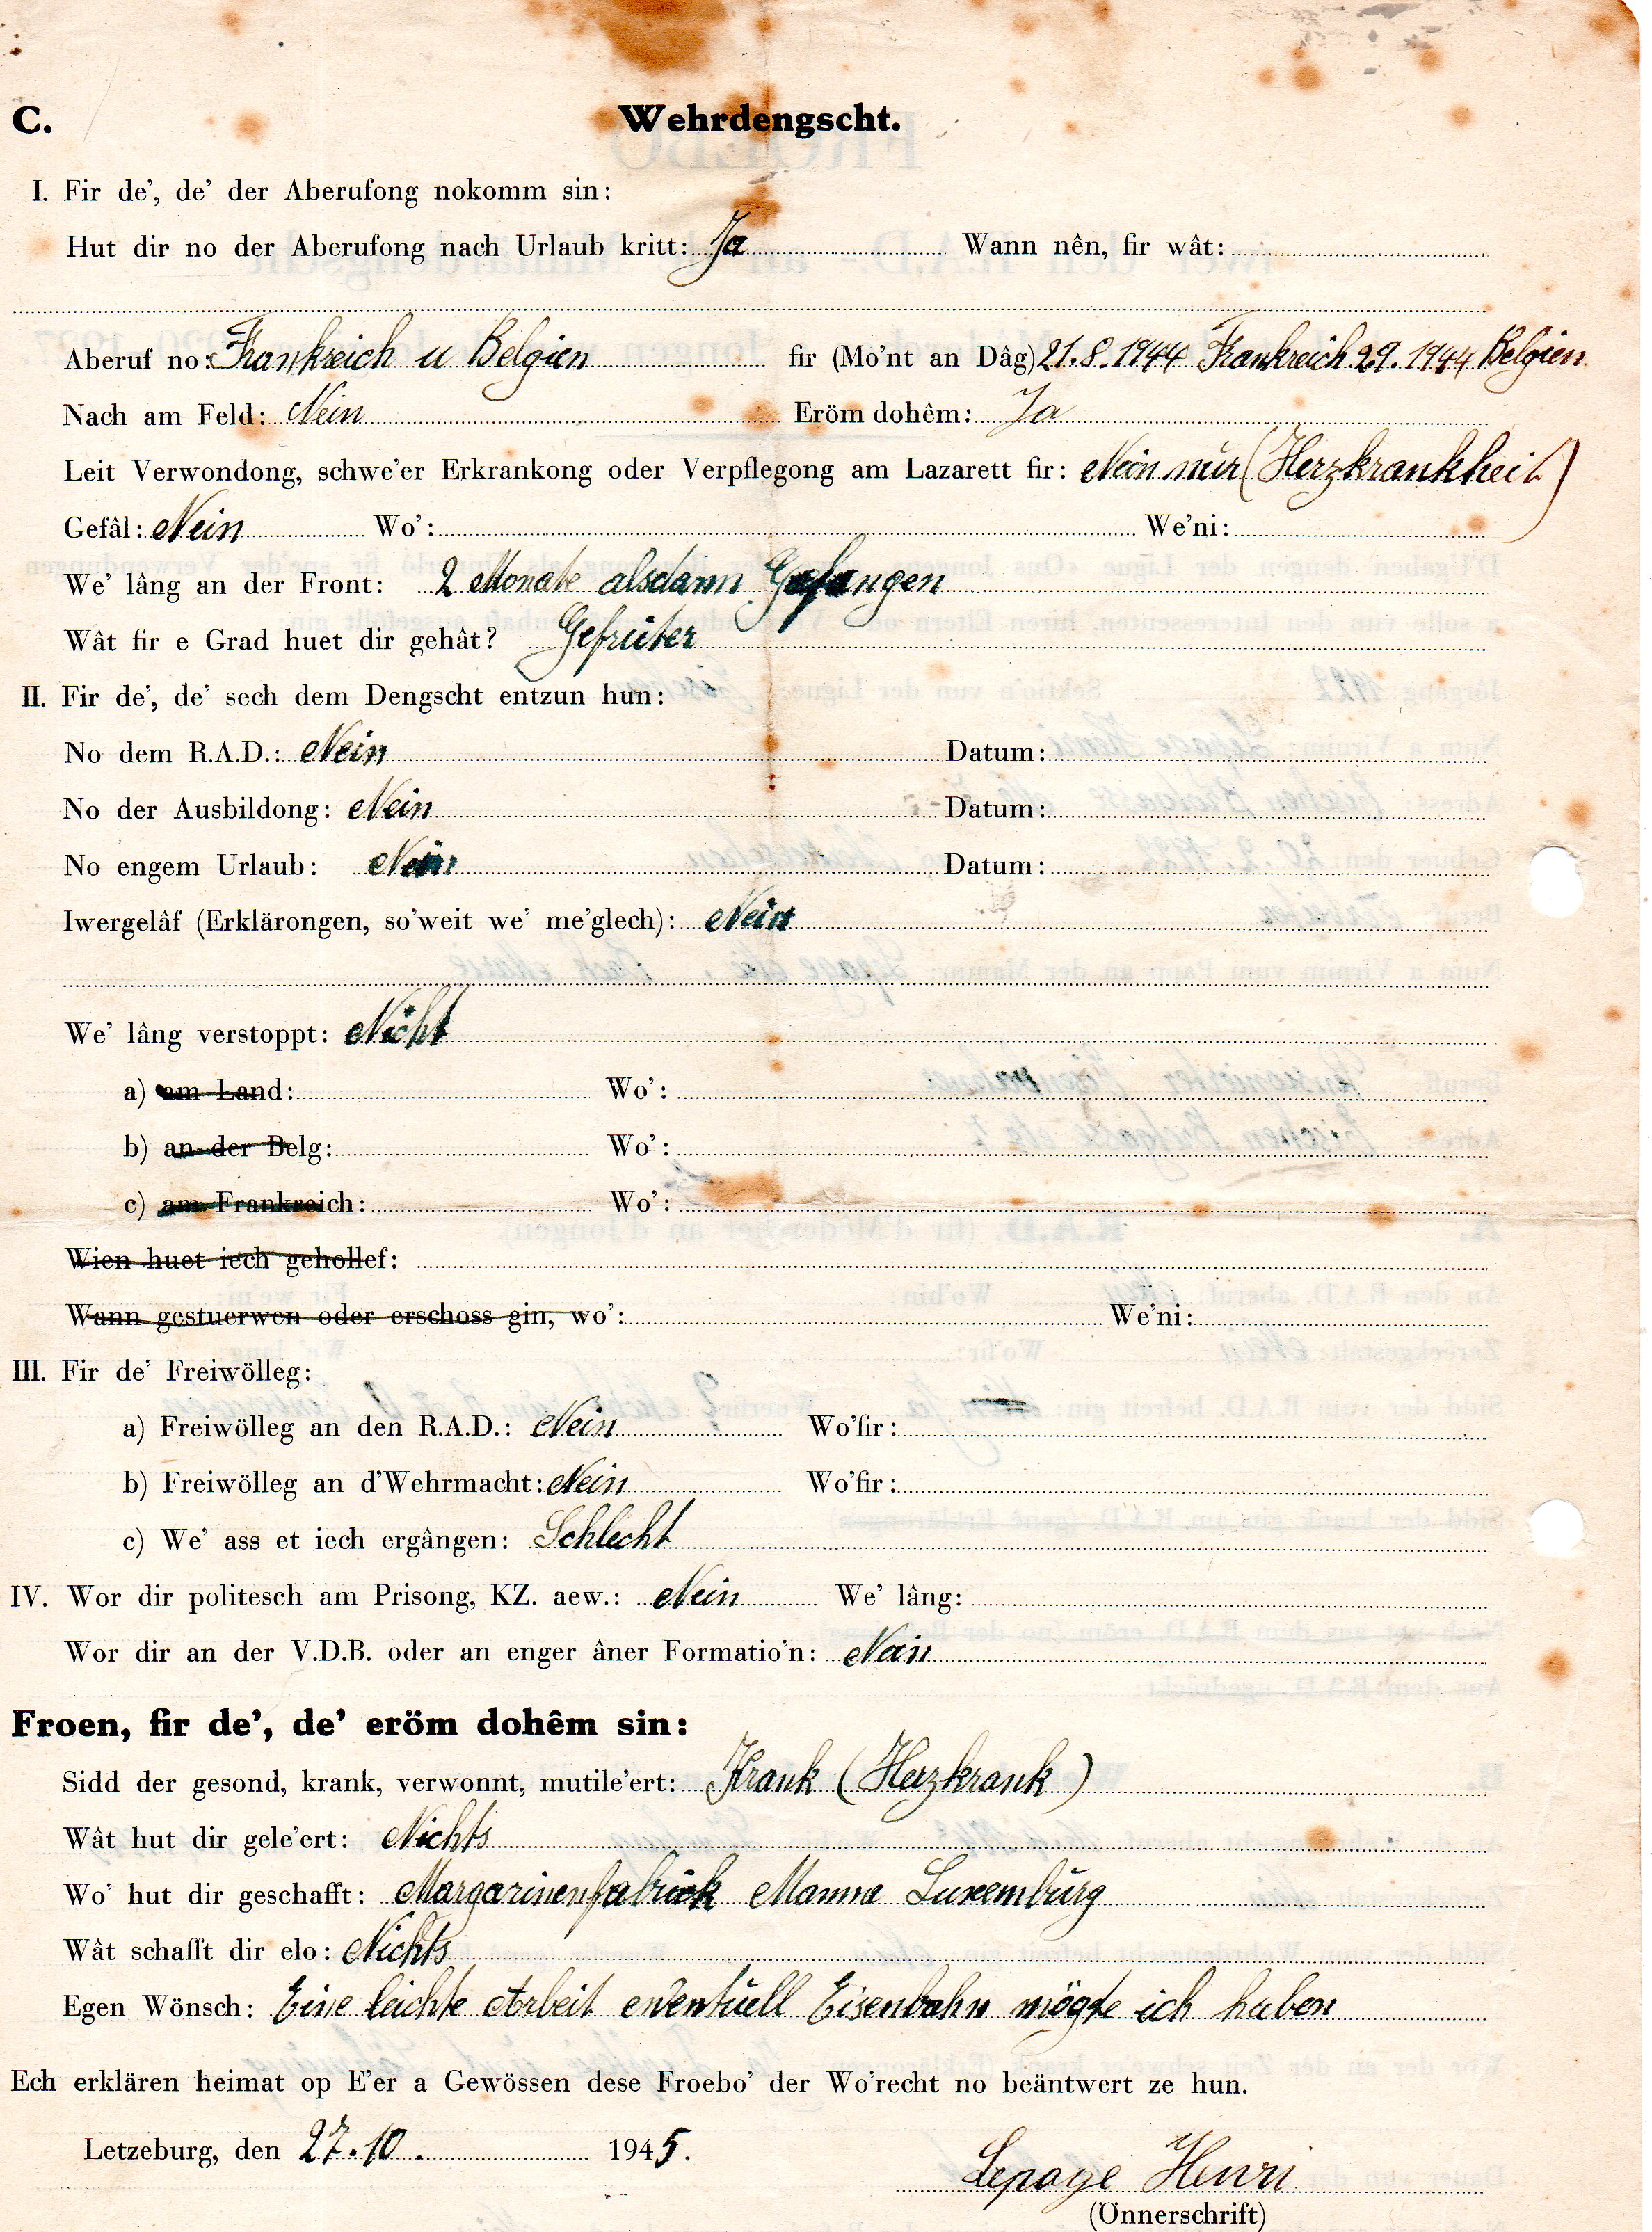 C. Wehrdengscht.
I. Fir de', de' der Aberufong nokomm sin:
Hut dir no der Aberufong nach Urlaub kritt: Ja Wann nên, fir wât:
Aberuf no: Frankreich u Belgien fir (Mo'nt an Dâg) 21.8.1944 Frankreich 29.1944 Belgien
Nach am Feld: Nein Eröm dohêm: Ja
Leit Verwondong, schwe'er Erkrankong oder Verpflegong am Lazarett fir: Nein nur (Herzkrankheit)
Gefâl: Nein Wo': We'ni:
We' lâng an der Front: 2 Monate alsdann Gefangen
Wât fir e Grad huet dir gehât? Gefriter
II. Fir de', de' sech dem Dengscht entzun hun:
No dem R.A.D.: Nein Datum:
No der Ausbildong: Nein Datum:
No engem Urlaub: Nein Datum:
Iwergelâf (Erklärongen, so'weit we' me'glech): Nein
We' lâng verstoppt: Nicht
a) am Land: Wo':
b) an der Belg: Wo':
c) am Frankreich: Wo':
Wien huet iech gehollef:
Wann gestuerwen oder erschoss gin, wo': We'ni:
III. Fir de' Freiwölleg:
a) Freiwölleg an den R.A.D.: Nein Wo'fir:
b) Freiwölleg an d'Wehrmacht: Nein Wo'fir:
c) We' ass et iech ergângen: Schlecht
IV. Wor dir politesch am Prisong, KZ. aew.: Nein We' lâng:
Wor dir an der V.D.B. oder an enger âner Formatio'n: Nein
Froen, fir de', de' eröm dohêm sin:
Sidd der gesond, krank, verwonnt, mutile'ert: Krank (Herzkrank)
Wât hut dir gele'ert: Nichts
Wo' hut dir geschafft: Margarinenfabrick Mamma Luxemburg
Wât schafft dir elo: Nichts
Egen Wönsch: Eine leichte Arbeit eventuell Eisenbahn mögte ich haben
Ech erklären heimat op E'er a Gewössen dese Froebo' der Wo'recht no beäntwert ze hun.
Letzeburg, den 27.10. 1945.
Lepage Henri
(Önnerschrift)